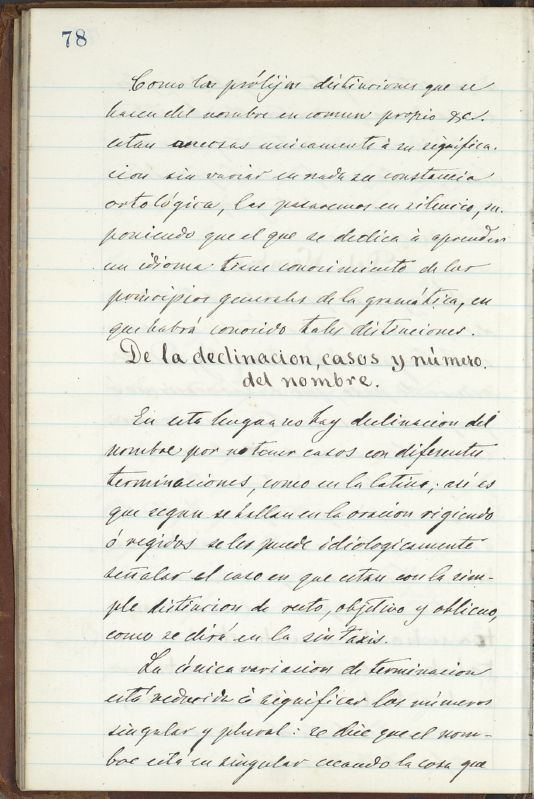 78
Como las prólijas distinciones que se
hacen del nombre en comun propio &c.
estan anecsas unicamente à su significa-
cion sin variar en nada su constancia
ortológica, las pasaremos en silencio, su-
poniendo que el que se dedica à aprender
un idioma tiene conocimiento de los
principios generales de la gramática, en
que habrá conocido tales distinciones.
De la declinacion, casos y número.
del nombre.
En esta lengua no hay declinacion del
nombre por no tener casos con diferentes
terminaciones, como en la latina; asi es
que segun se hallan en la oracion rigiendo
ó regidos se les puede idiologicamente
señalar el caso en que estan con la sim-
ple distincion de recto, objetivo y oblicuo,
como se dirá en la sintaxis.
La única variacion de terminacion
está reducida à significar los números
singular y plural: se dice que el nom-
bre esta en singular cuando la cosa que